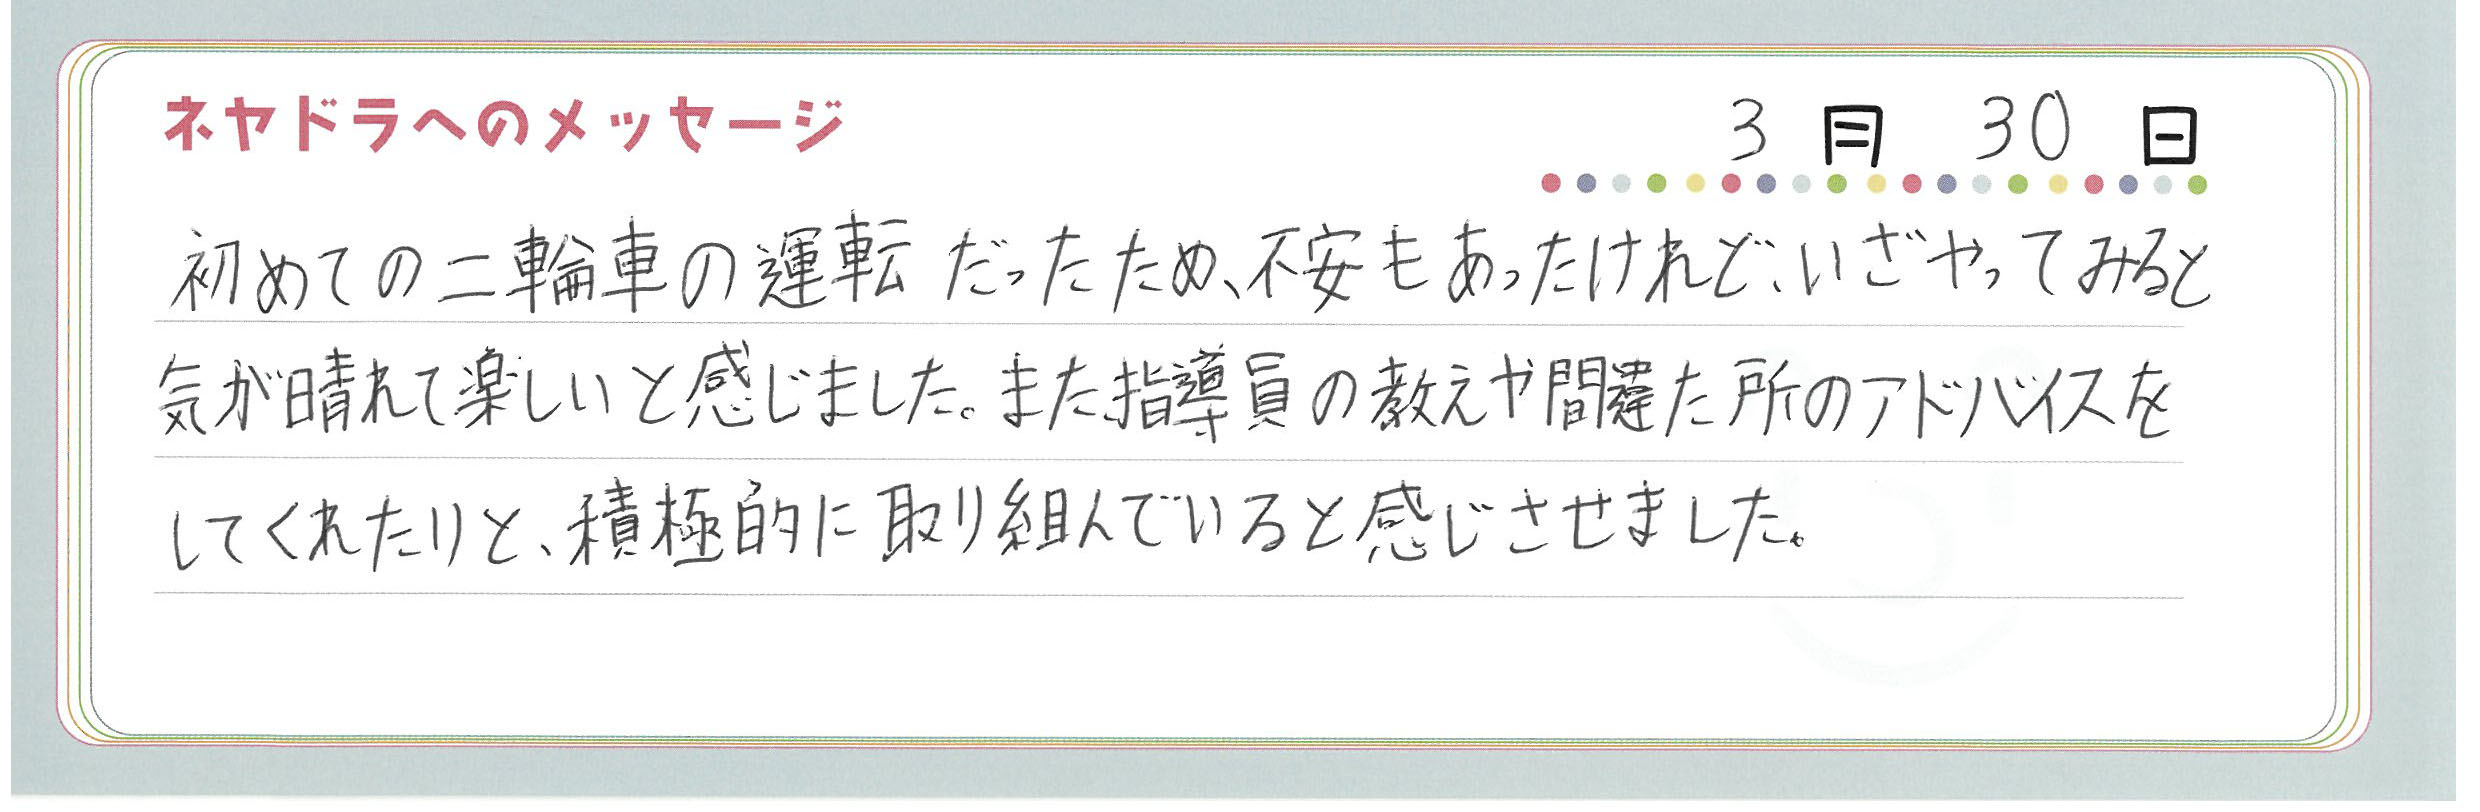 ネヤドラへのメッセージ
3月30日
初めての二輪車の運転だったため、不安もあったけれど、いざやってみると
気が晴れて楽しいと感じました。また指導員の教えや間違た所のアドバイスを
してくれたりと、積極的に取り組んでいると感じさせました。